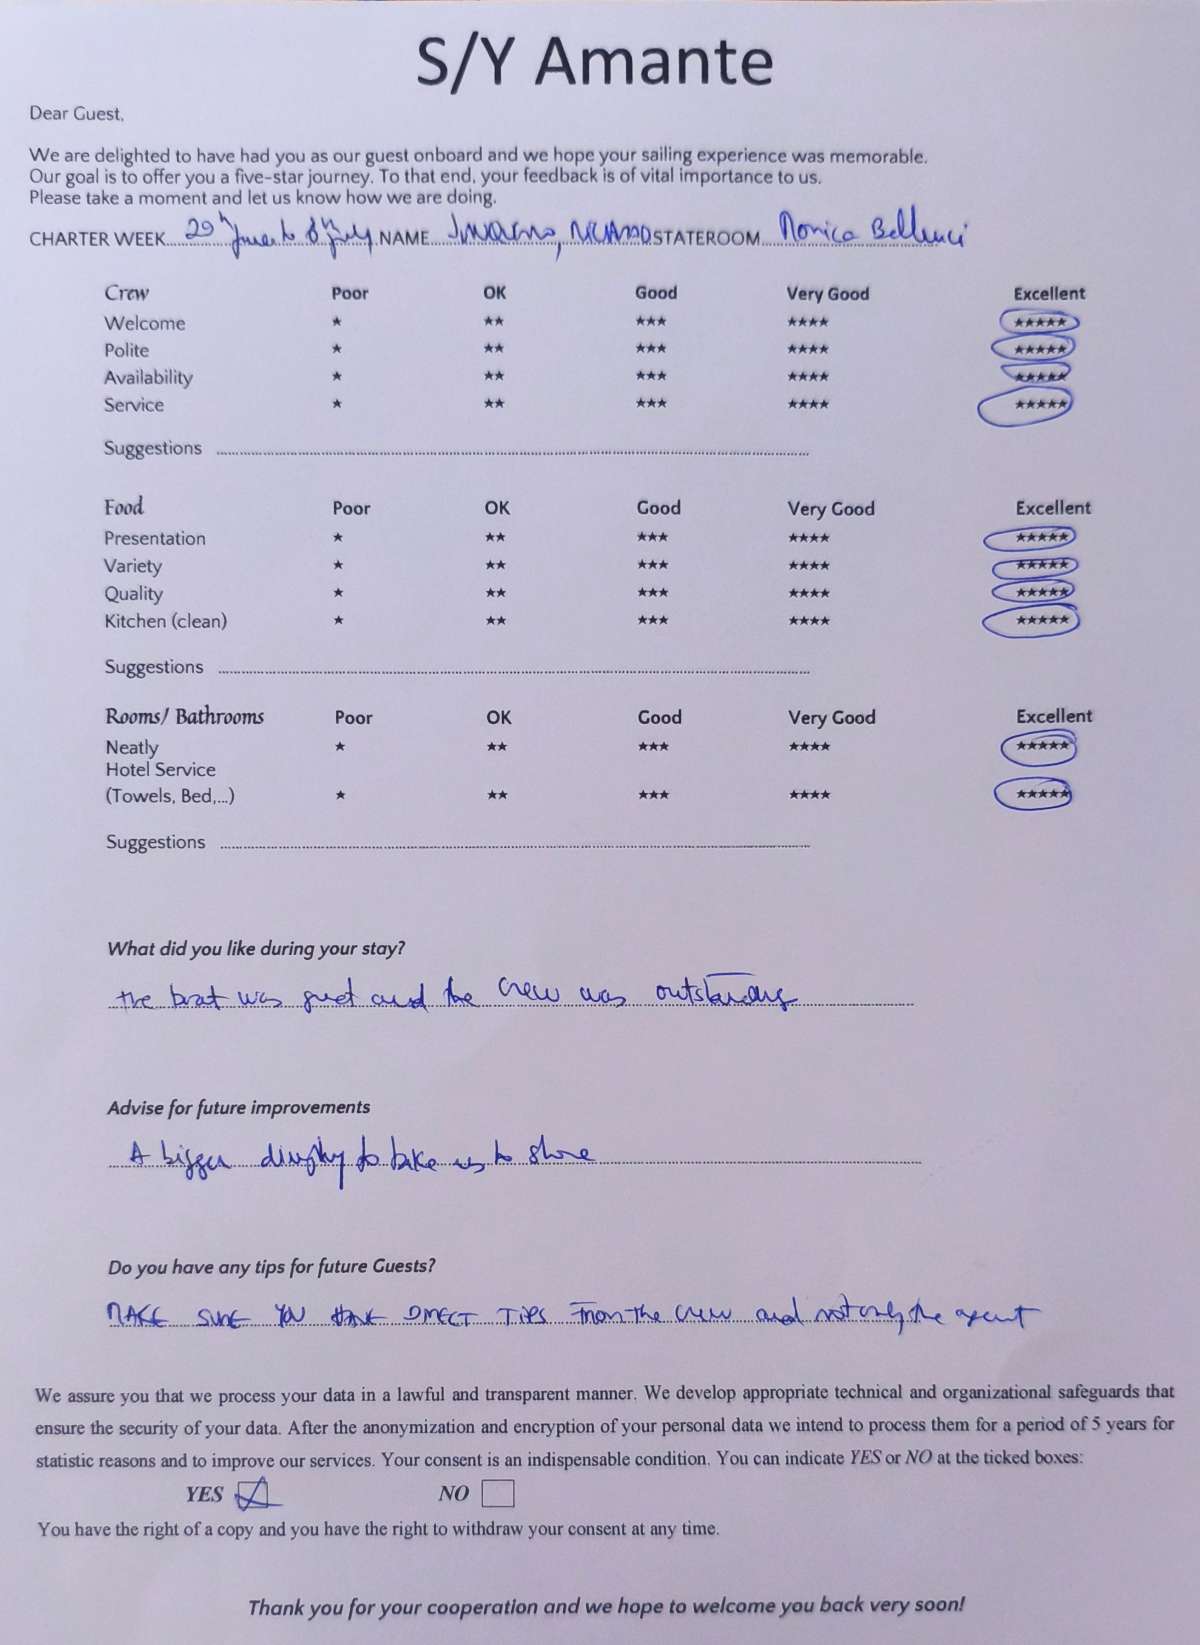 S/Y Amante
Dear Guest,
We are delighted to have had you as our guest onboard and we hope your sailing experience was memorable.
Our goal is to offer you a five-star journey. To that end, your feedback is of vital importance to us.
Please take a moment and let us know how we are doing.
CHARTER WEEK 29th June to 6th July NAME STATEROOM Monica Bellucci
Crew Poor OK Good Very Good Excellent
Welcome ★ ★★ ★★★ ★★★★ ★★★★★
Polite ★ ★★ ★★★ ★★★★ ★★★★★
Availability ★ ★★ ★★★ ★★★★ ★★★★★
Service ★ ★★ ★★★ ★★★★ ★★★★★
Suggestions
Food Poor OK Good Very Good Excellent
Presentation ★ ★★ ★★★ ★★★★ ★★★★★
Variety ★ ★★ ★★★ ★★★★ ★★★★★
Quality ★ ★★ ★★★ ★★★★ ★★★★★
Kitchen (clean) ★ ★★ ★★★ ★★★★ ★★★★★
Suggestions
Rooms/ Bathrooms Poor OK Good Very Good Excellent
Neatly ★ ★★ ★★★ ★★★★ ★★★★★
Hotel Service
(Towels, Bed,...) ★ ★★ ★★★ ★★★★ ★★★★★
Suggestions
What did you like during your stay?
the boat was great and the crew was outstanding
Advise for future improvements
A bigger dinghy to take us to shore
Do you have any tips for future Guests?
MAKE SURE YOU HAVE DIRECT TIPS From the crew and not only the agent
We assure you that we process your data in a lawful and transparent manner. We develop appropriate technical and organizational safeguards that
ensure the security of your data. After the anonymization and encryption of your personal data we intend to process them for a period of 5 years for
statistic reasons and to improve our services. Your consent is an indispensable condition. You can indicate YES or NO at the ticked boxes:
YES NO
You have the right of a copy and you have the right to withdraw your consent at any time.
Thank you for your cooperation and we hope to welcome you back very soon!